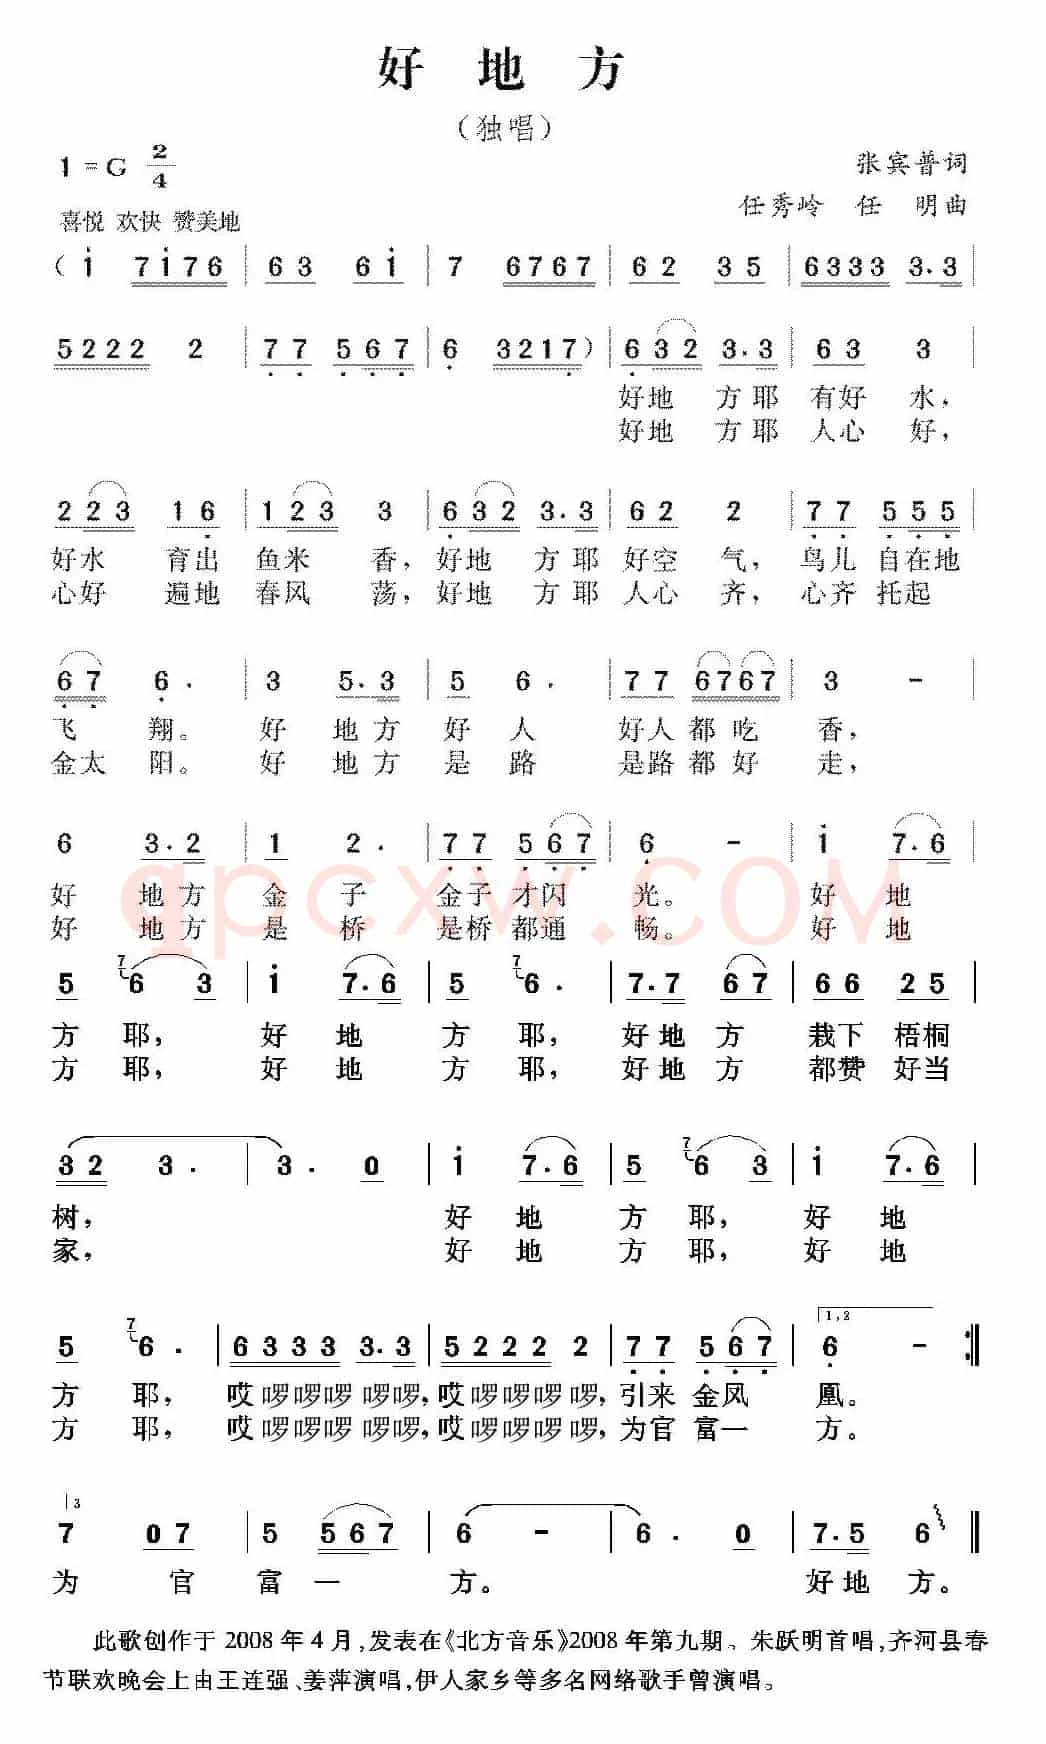 好 地 方
（独唱）
1 = G 2/4
张宾普词
任秀岭 任 明曲
喜悦 欢快 赞美地
( i 7i76 | 63 6i | 7 6767 | 62 35 | 6333 3.3
5222 2 | 77 567 | 6 3217 ) | 632 3.3 | 63 3
好地 方耶 有好 水，
好地 方耶 人心 好，
223 16 | 123 3 | 632 3.3 | 62 2 | 77 555
好水 育出 鱼米 香，好地 方耶 好空 气，鸟儿 自在地
心好 遍地 春风 荡，好地 方耶 人心 齐，心齐 托起
67 6. | 3 5.3 | 5 6. | 77 6767 | 3 -
飞 翔。 好 地方 好 人 好人 都 吃 香，
金太 阳。 好 地方 是 路 是路 都 好 走，
6 3.2 | 1 2. | 77 567 | 6 - | i 7.6
好 地方 金 子 金子 才闪 光。 好 地
好 地方 是 桥 是桥 都通 畅。 好 地
qpcxw.COM
5 7 6 3 | i 7.6 | 5 7 6. | 7.7 67 | 66 25
方 耶， 好 地 方 耶， 好地 方 栽下 梧桐
方 耶， 好 地 方 耶， 好地 方 都赞 好当
32 3. | 3. 0 | i 7.6 | 5 7 6 3 | i 7.6
树， 好 地 方 耶， 好 地
家， 好 地 方 耶， 好 地
1,2
5 7 6. | 6333 3.3 | 5222 2 | 77 567 | 6 - :||
方 耶， 哎啰啰啰 啰啰，哎啰啰啰啰，引来 金凤 凰。
方 耶， 哎啰啰啰 啰啰，哎啰啰啰啰，为官 富一 方。
3
7 07 | 5 567 | 6 - | 6. 0 | 7.5 6 ||
为 官 富 一 方。 好地 方。
此歌创作于 2008 年 4 月，发表在《北方音乐》2008 年第九期。朱跃明首唱，齐河县春
节联欢晚会上由王连强、姜萍演唱，伊人家乡等多名网络歌手曾演唱。